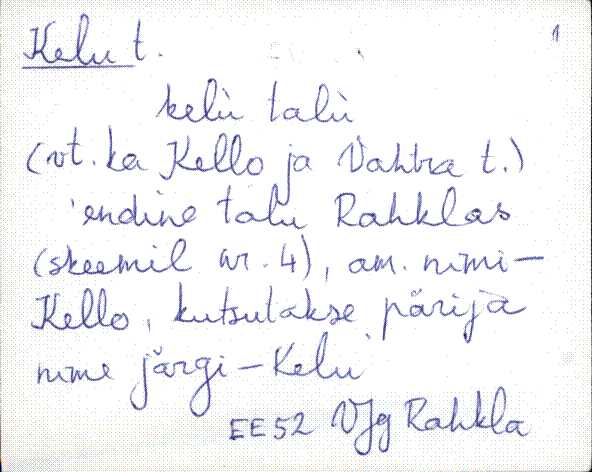 Kelu t. 1
kelù talù
(vt. ka Kello ja Vahtra t.)
'endine talu Rahklas
(skeemil nr. 4), am. nimi-
Kello, kutsutakse pärija
nime järgi - Kelu'
EE52 VJg Rahkla